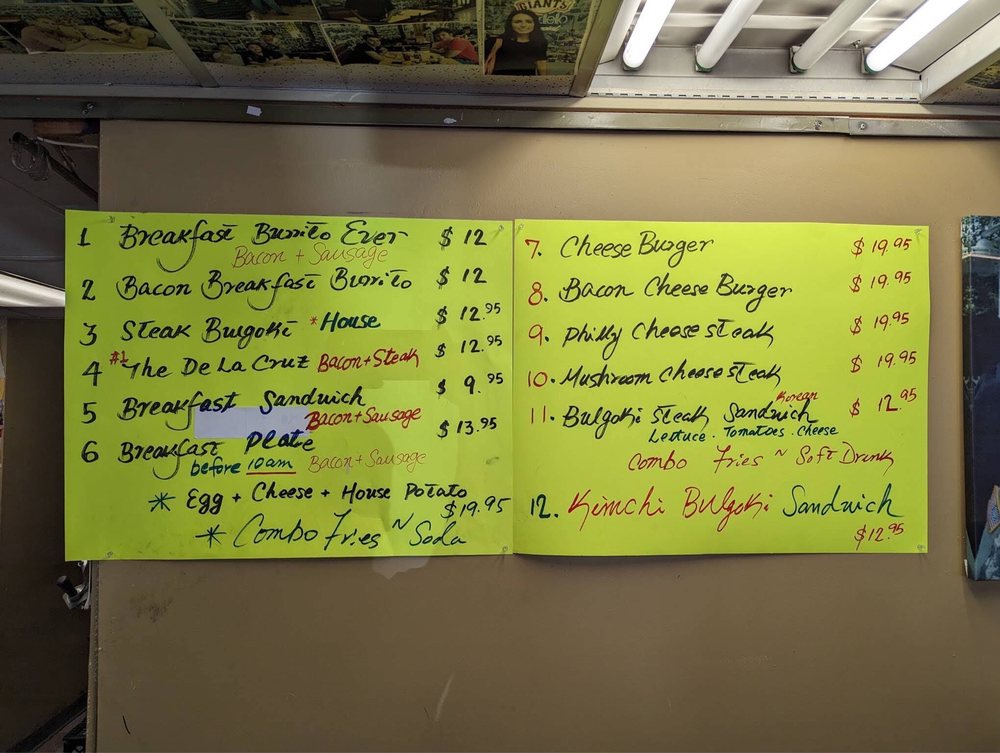 1 Breakfast Burrito Ever $ 12
Bacon + Sausage
2 Bacon Breakfast Burrito $ 12
3 Steak Bulgoki *House $ 12.95
4 #1 The De La Cruz Bacon + Steak $ 12.95
5 Breakfast Sandwich $ 9.95
Bacon + Sausage
6 Breakfast Plate $ 13.95
before 10am Bacon + Sausage
* Egg + Cheese + House Potato
$19.95
* Combo Fries ~ Soda
7. Cheese Burger $ 19.95
8. Bacon Cheese Burger $ 19.95
9. Philly Cheese steak $ 19.95
10. Mushroom Cheese steak $ 19.95
Korean
11. Bulgoki Steak Sandwich $ 12.95
Lestuce . Tomatoes . Cheese
Combo Fries ~ Soft Drink
12. Kimchi Bulgoki Sandwich
$12.95
GIANTS